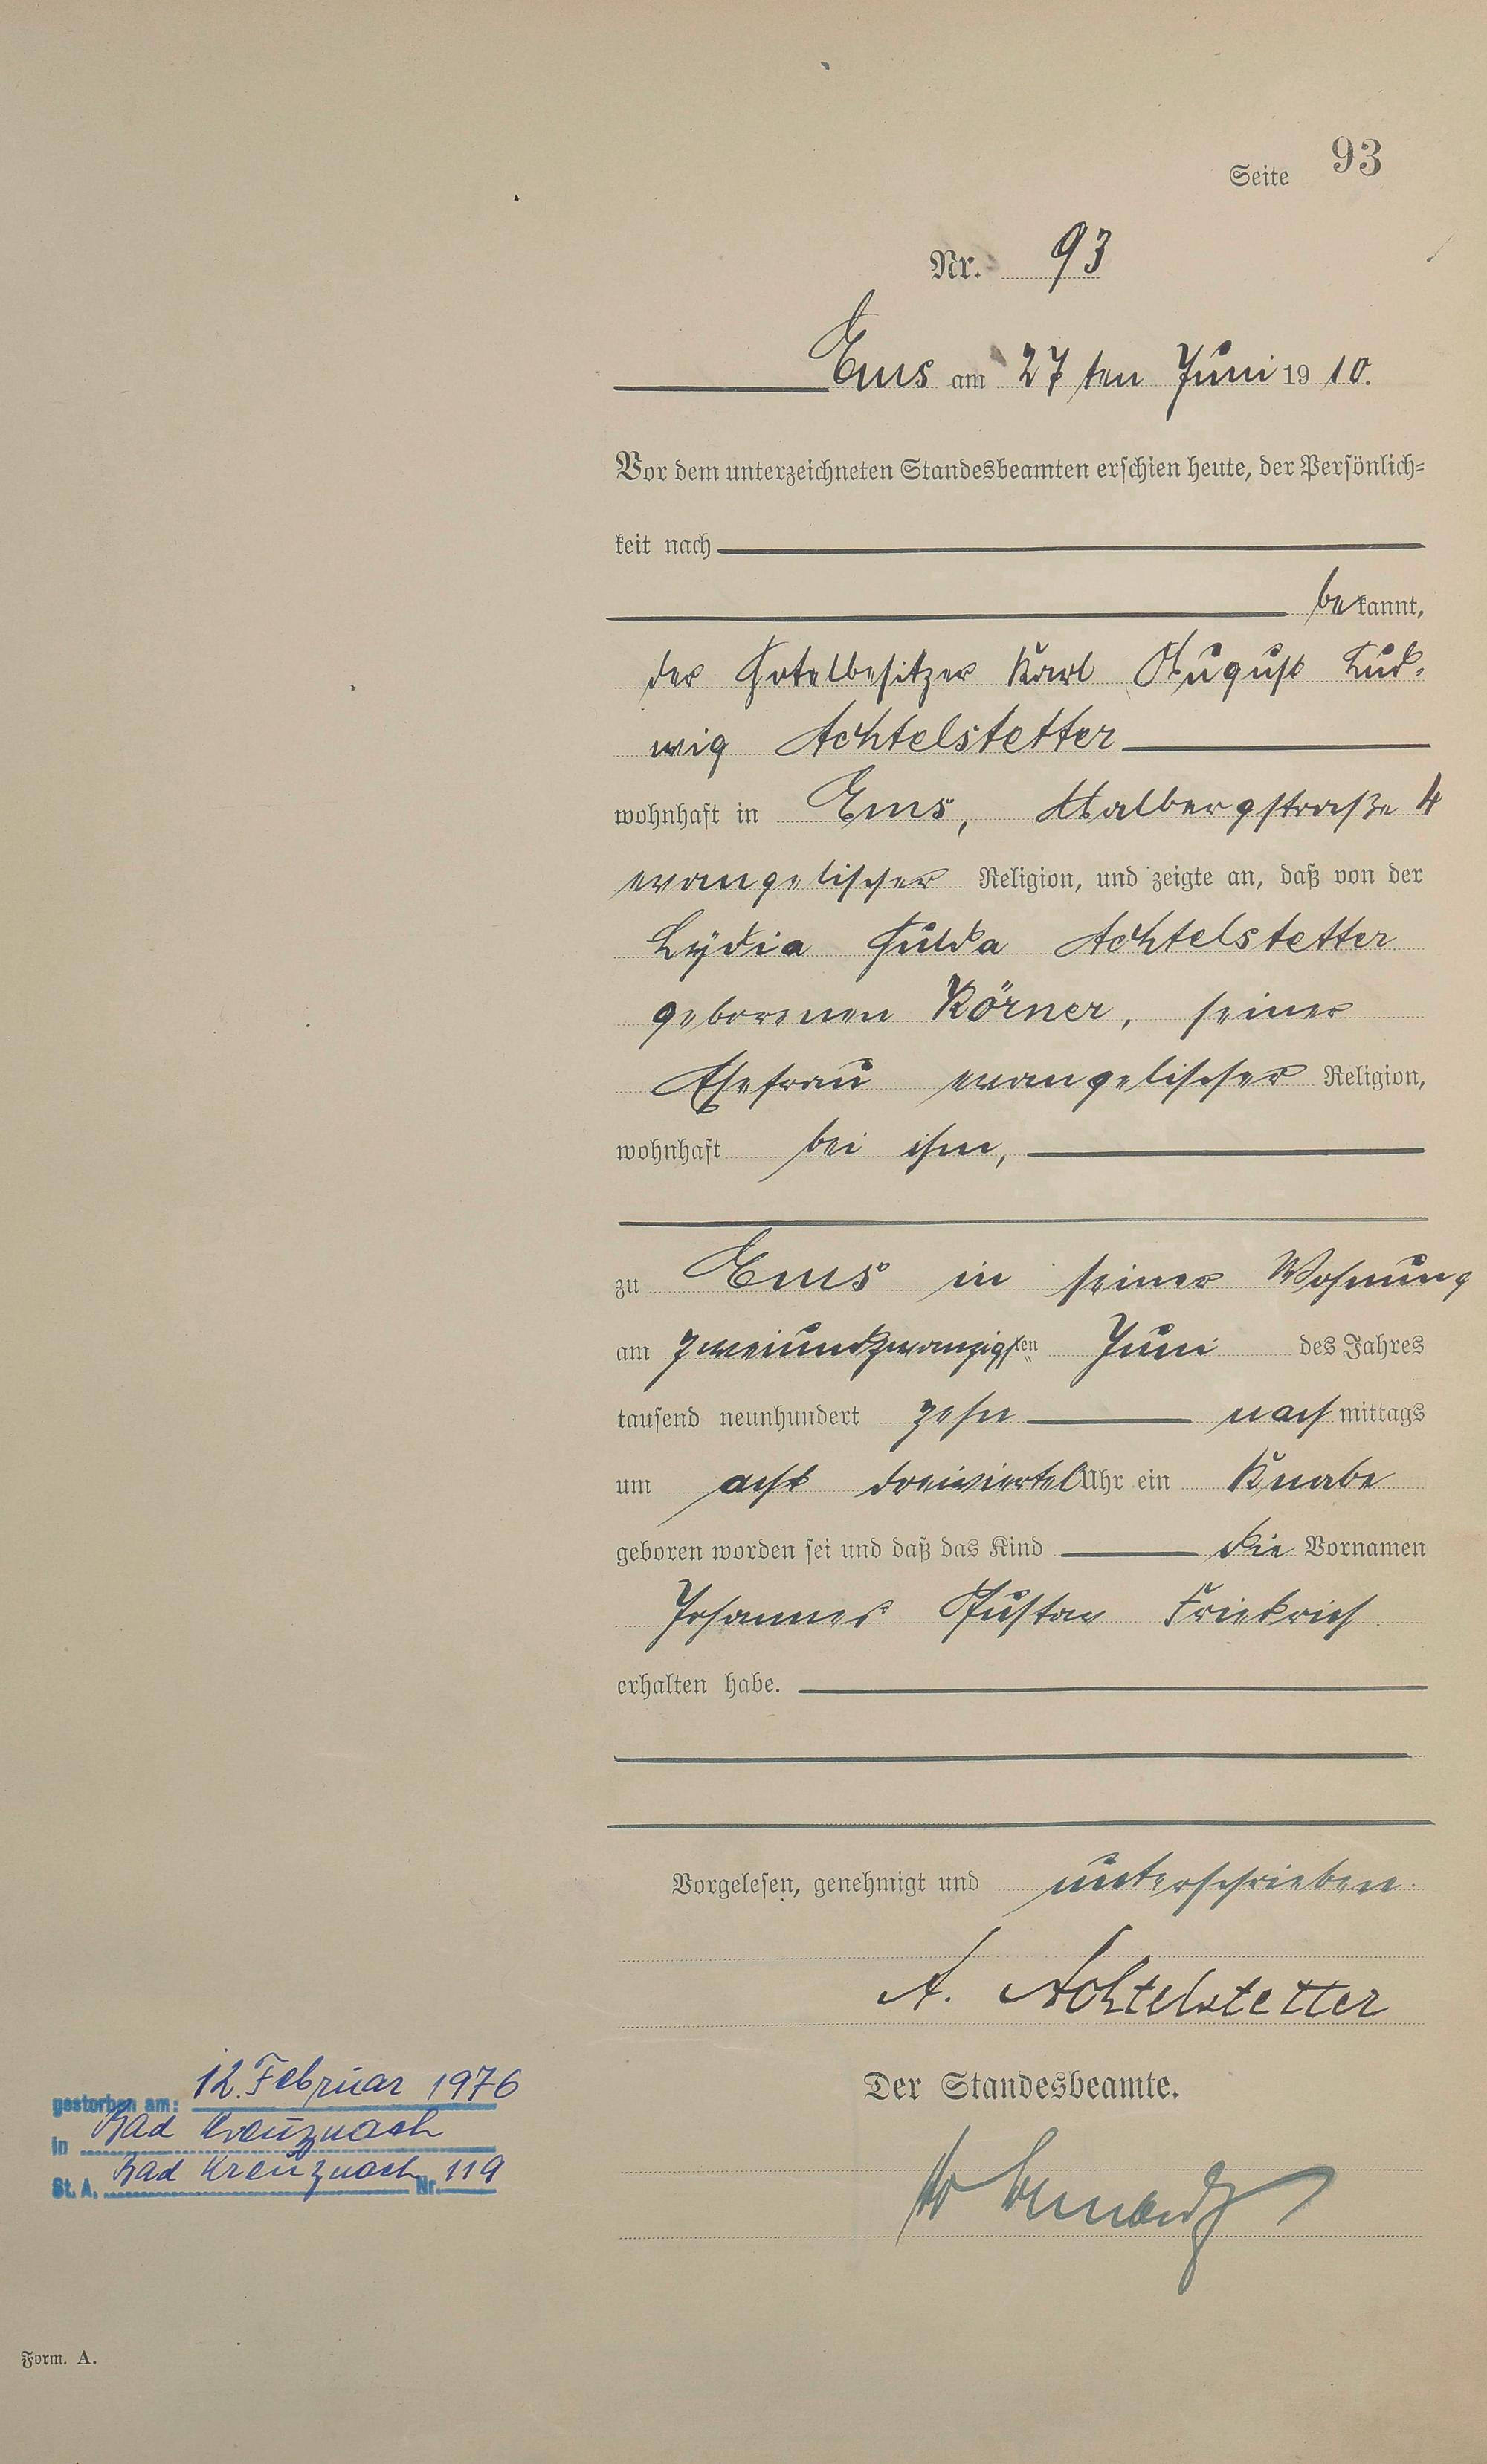 Seite 93
Nr. 93
Ems am 27ten Juni 1910.
Vor dem unterzeichneten Standesbeamten erschien heute, der Persönlich-
keit nach
bekannt,
der Hotelbesitzer Karl August Lud-
wig Achtelstetter
wohnhaft in Ems, Malbergstraße 4
evangelischer Religion, und zeigte an, daß von der
Lydia Hulda Achtelstetter
geborenen Körner, seiner
Ehefrau evangelischer Religion,
wohnhaft bei ihm,
zu Ems in seiner Wohnung
am zweiundzwanzigsten Juni des Jahres
tausend neunhundert zehn nachmittags
um acht dreiviertel Uhr ein Knabe
geboren worden sei und daß das Kind die Vornamen
Johannes Gustav Friedrich
erhalten habe.
Vorgelesen, genehmigt und unterschrieben.
A. Achtelstetter
Der Standesbeamte.
gestorben am: 12. Februar 1976
in Bad Kreuznach
St. A. Bad Kreuznach Nr. 119
Form. A.